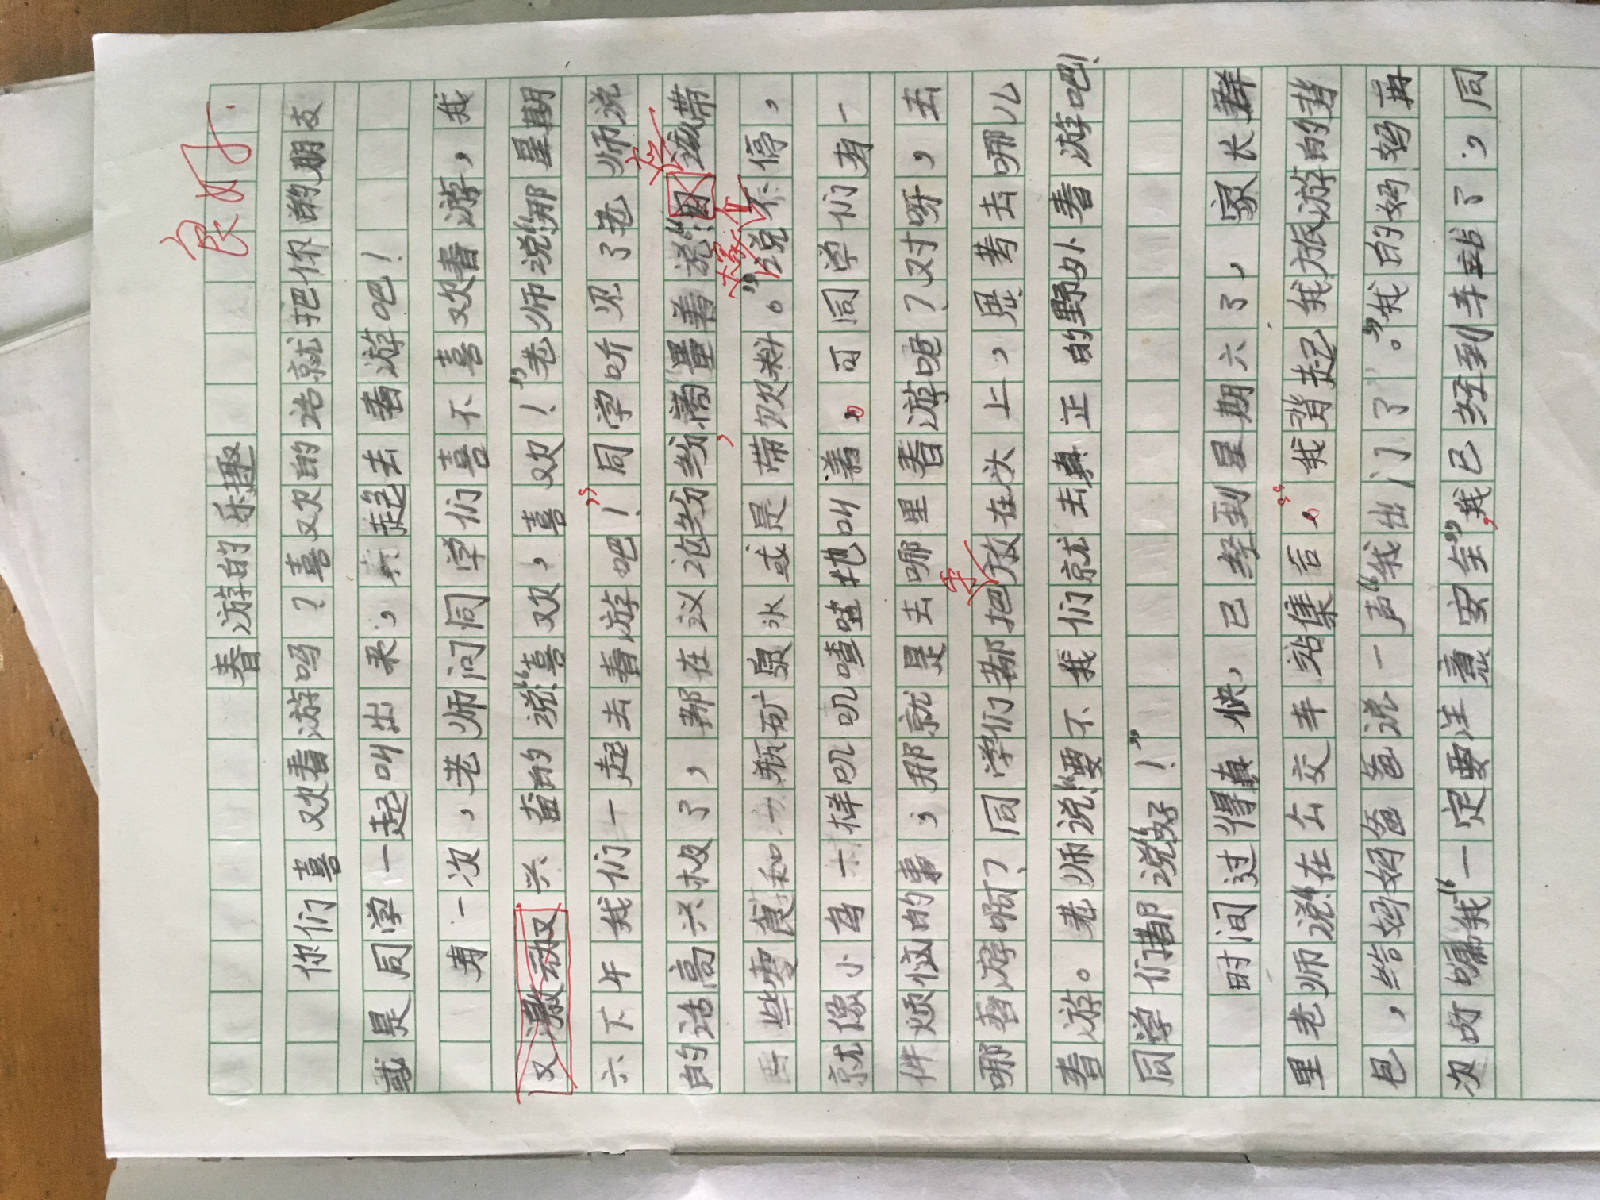 春游的乐趣
你们喜欢春游吗？喜欢的话就把你的朋友
或是同学一起叫出来，一起去春游吧！
有一次，老师问同学们喜不喜欢春游，我
又激动 兴奋的说“喜欢，喜欢！”老师说“那星期
六下午我们一起去春游吧！”同学听见了老师说
的话高兴极了，都在议论纷纷，商量着说“因该带
一些面包和一瓶矿泉水或是带饮料。”说不停，
就像小鸟一样叽叽喳喳地叫着，可同学们有一
件烦恼的事，那就是去哪里春游呢？对呀，去
哪春游呢？同学们都把放在头上，思考去哪儿
春游。老师说“要不我们就去真正的野外春游吧！
同学们都说“好！”
时间过得真快，已经到星期六了，家长群
里老师说“在公交车站集合。”我背起我旅游的背
包，给妈妈爸爸说一声“我出门了。”我的妈妈再
次叮嘱我“一定要注意安全”，我已经到车站了，同